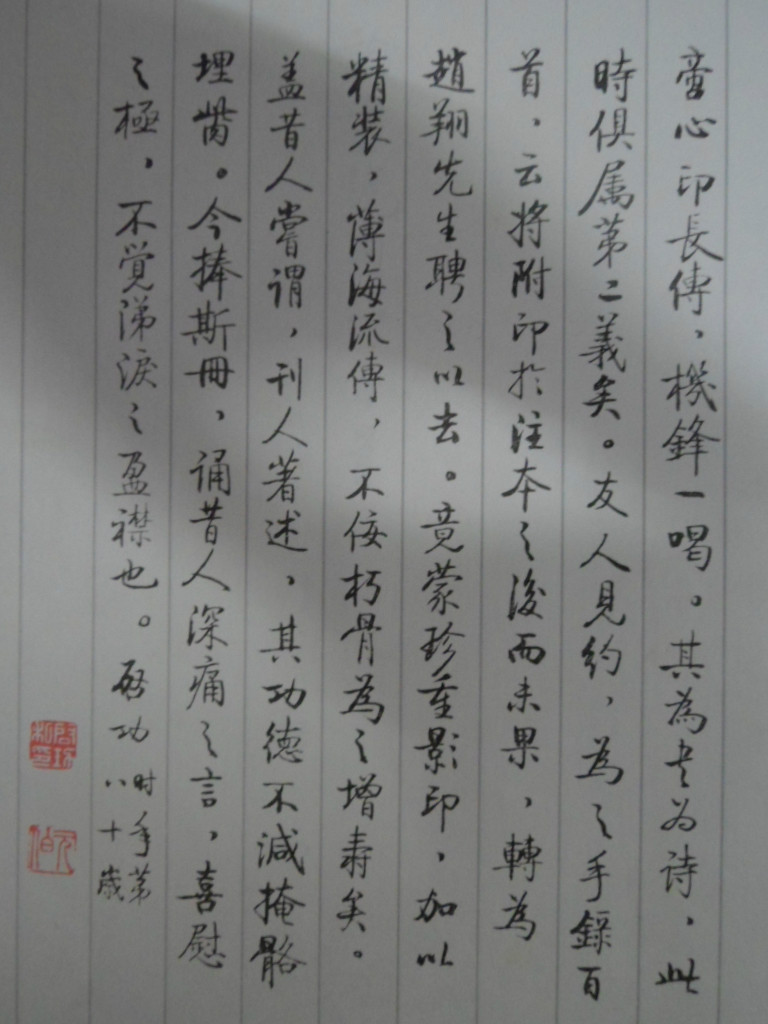 啻心印長傳，機鋒一喝。其為書為詩，此
時俱属第二義矣。友人見約，為之手錄百
首，云將附印於注本之後而未果，轉為
趙翔先生聘之以去。竟蒙珍重影印，加以
精裝，薄海流傳，不佞朽骨為之增壽矣。
盖昔人嘗謂，刊人著述，其功德不減掩骼
埋胔。今捧斯冊，誦昔人深痛之言，喜慰
之極，不覺涕淚之盈襟也。啓功
時年第
八十歲